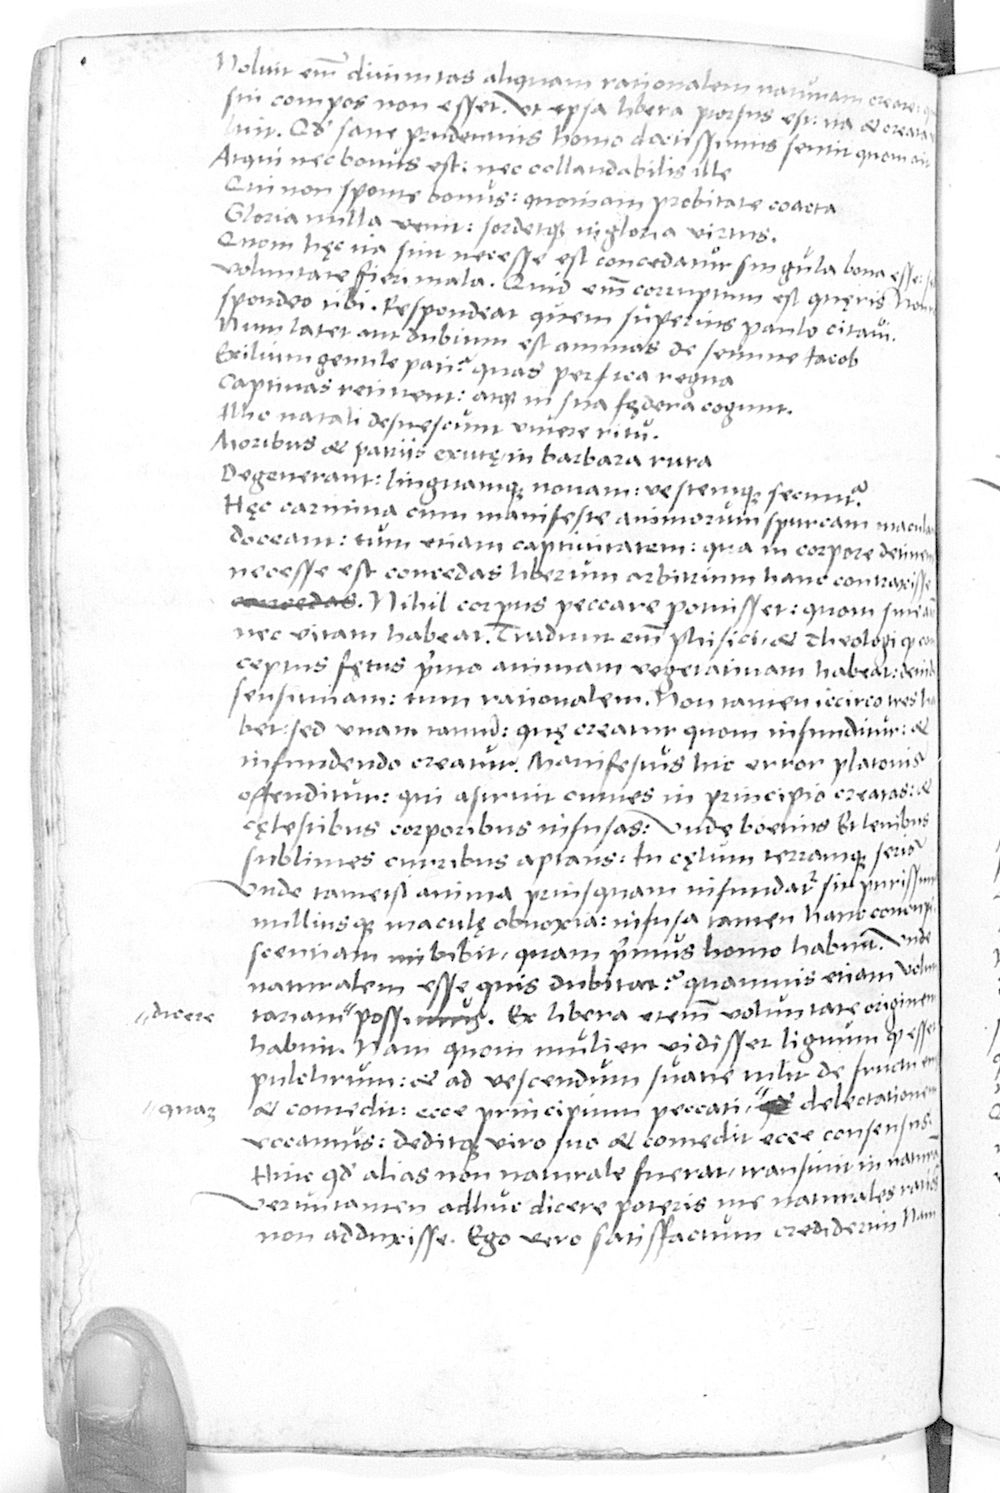 Noluit em̄ diuinitas aliquam rationalem naturam creare: q
sui compos non esset. Vt epsa libera prorsus est: ita & creata
luit. Qd́ sane prudentius homo doctissimus sentit quom ait
Atqui nec bonus est: nec collaudabilis ille
Qui non sponte bonus: quoniam probitate coacta
Gloria nulla venit: sordetq; ingloria virtus.
Quom hęc ita sint necesse est concedatur singula bona esse:
voluntate fieri mala. Quid em̄ corruptum est quęris Non
spondeo tibi. Respondeat quem superius paulo citaui.
Num latet aut dubium est animas de semine Iacob
Exilium gentile pati? quas persica regna
Captiuas retinent: atq; in sua fędera cogunt.
Illic natali desuescunt viuere ritu.
Moribus & patriis exutę in barbara rura
Degenerant: linguamq; nouam: vestemq; secunt̃
Hęc carmina cum manifeste animorum spurcam macula
doceant: tum etiam captiuitatem: qua in corpore detinen
necesse est concedas liberum arbitrium hanc contraxisse
concedas. Nihil corpus peccare potuisset: quom sine
nec vitam habeat. Tradunt em̄ phisici, & Theologi q con
ceptus fętus p̃mo animam vegetatiuam habeat: deinde
sensitiuam: tum rationalem. Non tamen iccirco tres ha
bet: sed vnam tantū: quę creatur quom infunditur: &
infundendo creatur. Manifestus hic error platonis
offenditur: qui astruit omnes in principio creatas: &
cęlestibus corporibus infusas: Vndę boetius Et leuibus
sublimes curribus aptans: In cęlum terramq; seris
Vnde tametsi anima priusquam infundat̃ sit purissima
nulliusq; maculę obnoxia: infusa tamen hanc concupi
scentiam imbibit, quam p̃mus homo habuit. Vnde
naturalem essę quis dubitat? quamuis etiam volun
"dicere tariam" possimus. Ex libera etem̄ voluntate originem
habuit. Nam quom mulier vidisset lignum q esset
pulchrum: & ad vescendum suaue tulit de fructu eius
"quaz & comedit: ecce principium peccati," delectationem
vocamus: deditq; viro suo & comedit ecce consensus.
Hinc qd́ alias non naturale fuerat, transiuit in naturā
Veruntamen adhuc dicere poteris me naturales ratiōs
non adduxisse. Ego vero satisfactum crediderim Nam